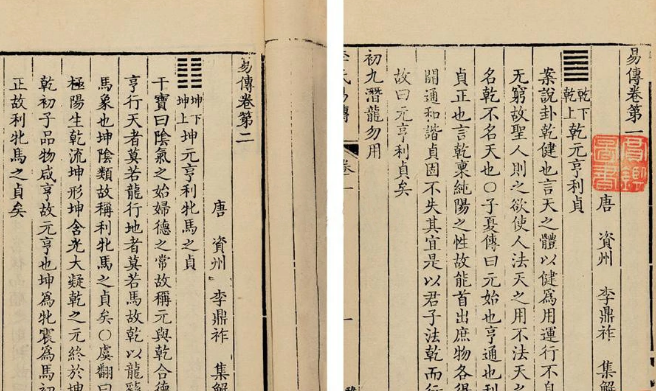 易傳卷第一
唐 資州 李鼎祚 集解
乾下
乾上 乾元亨利貞
案說卦乾健也言天之體以健爲用運行不息
无窮故聖人則之欲使人法天之用不法天之
名乾不名天也〇子夏傳曰元始也亨通也利
貞正也言乾稟純陽之性故能首出庶物各得
開通和諧貞固不失其宜是以君子法乾而行
故曰元亨利貞矣
初九潛龍勿用
氏易傳 卷一
易傳卷第二
唐 資州 李鼎祚 集解
坤下
坤上 坤元亨利牝馬之貞
干寶曰陰氣之始婦德之常故稱元與乾合德
亨行天者莫若龍行地者莫若馬故乾以龍繇
馬象也坤陰類故稱利牝馬之貞矣〇虞翻曰
極陽生乾流坤形坤含光大凝乾之元終於坤
乾初子品物咸亨故元亨也坤爲牝震爲馬初
正故利牝馬之貞矣